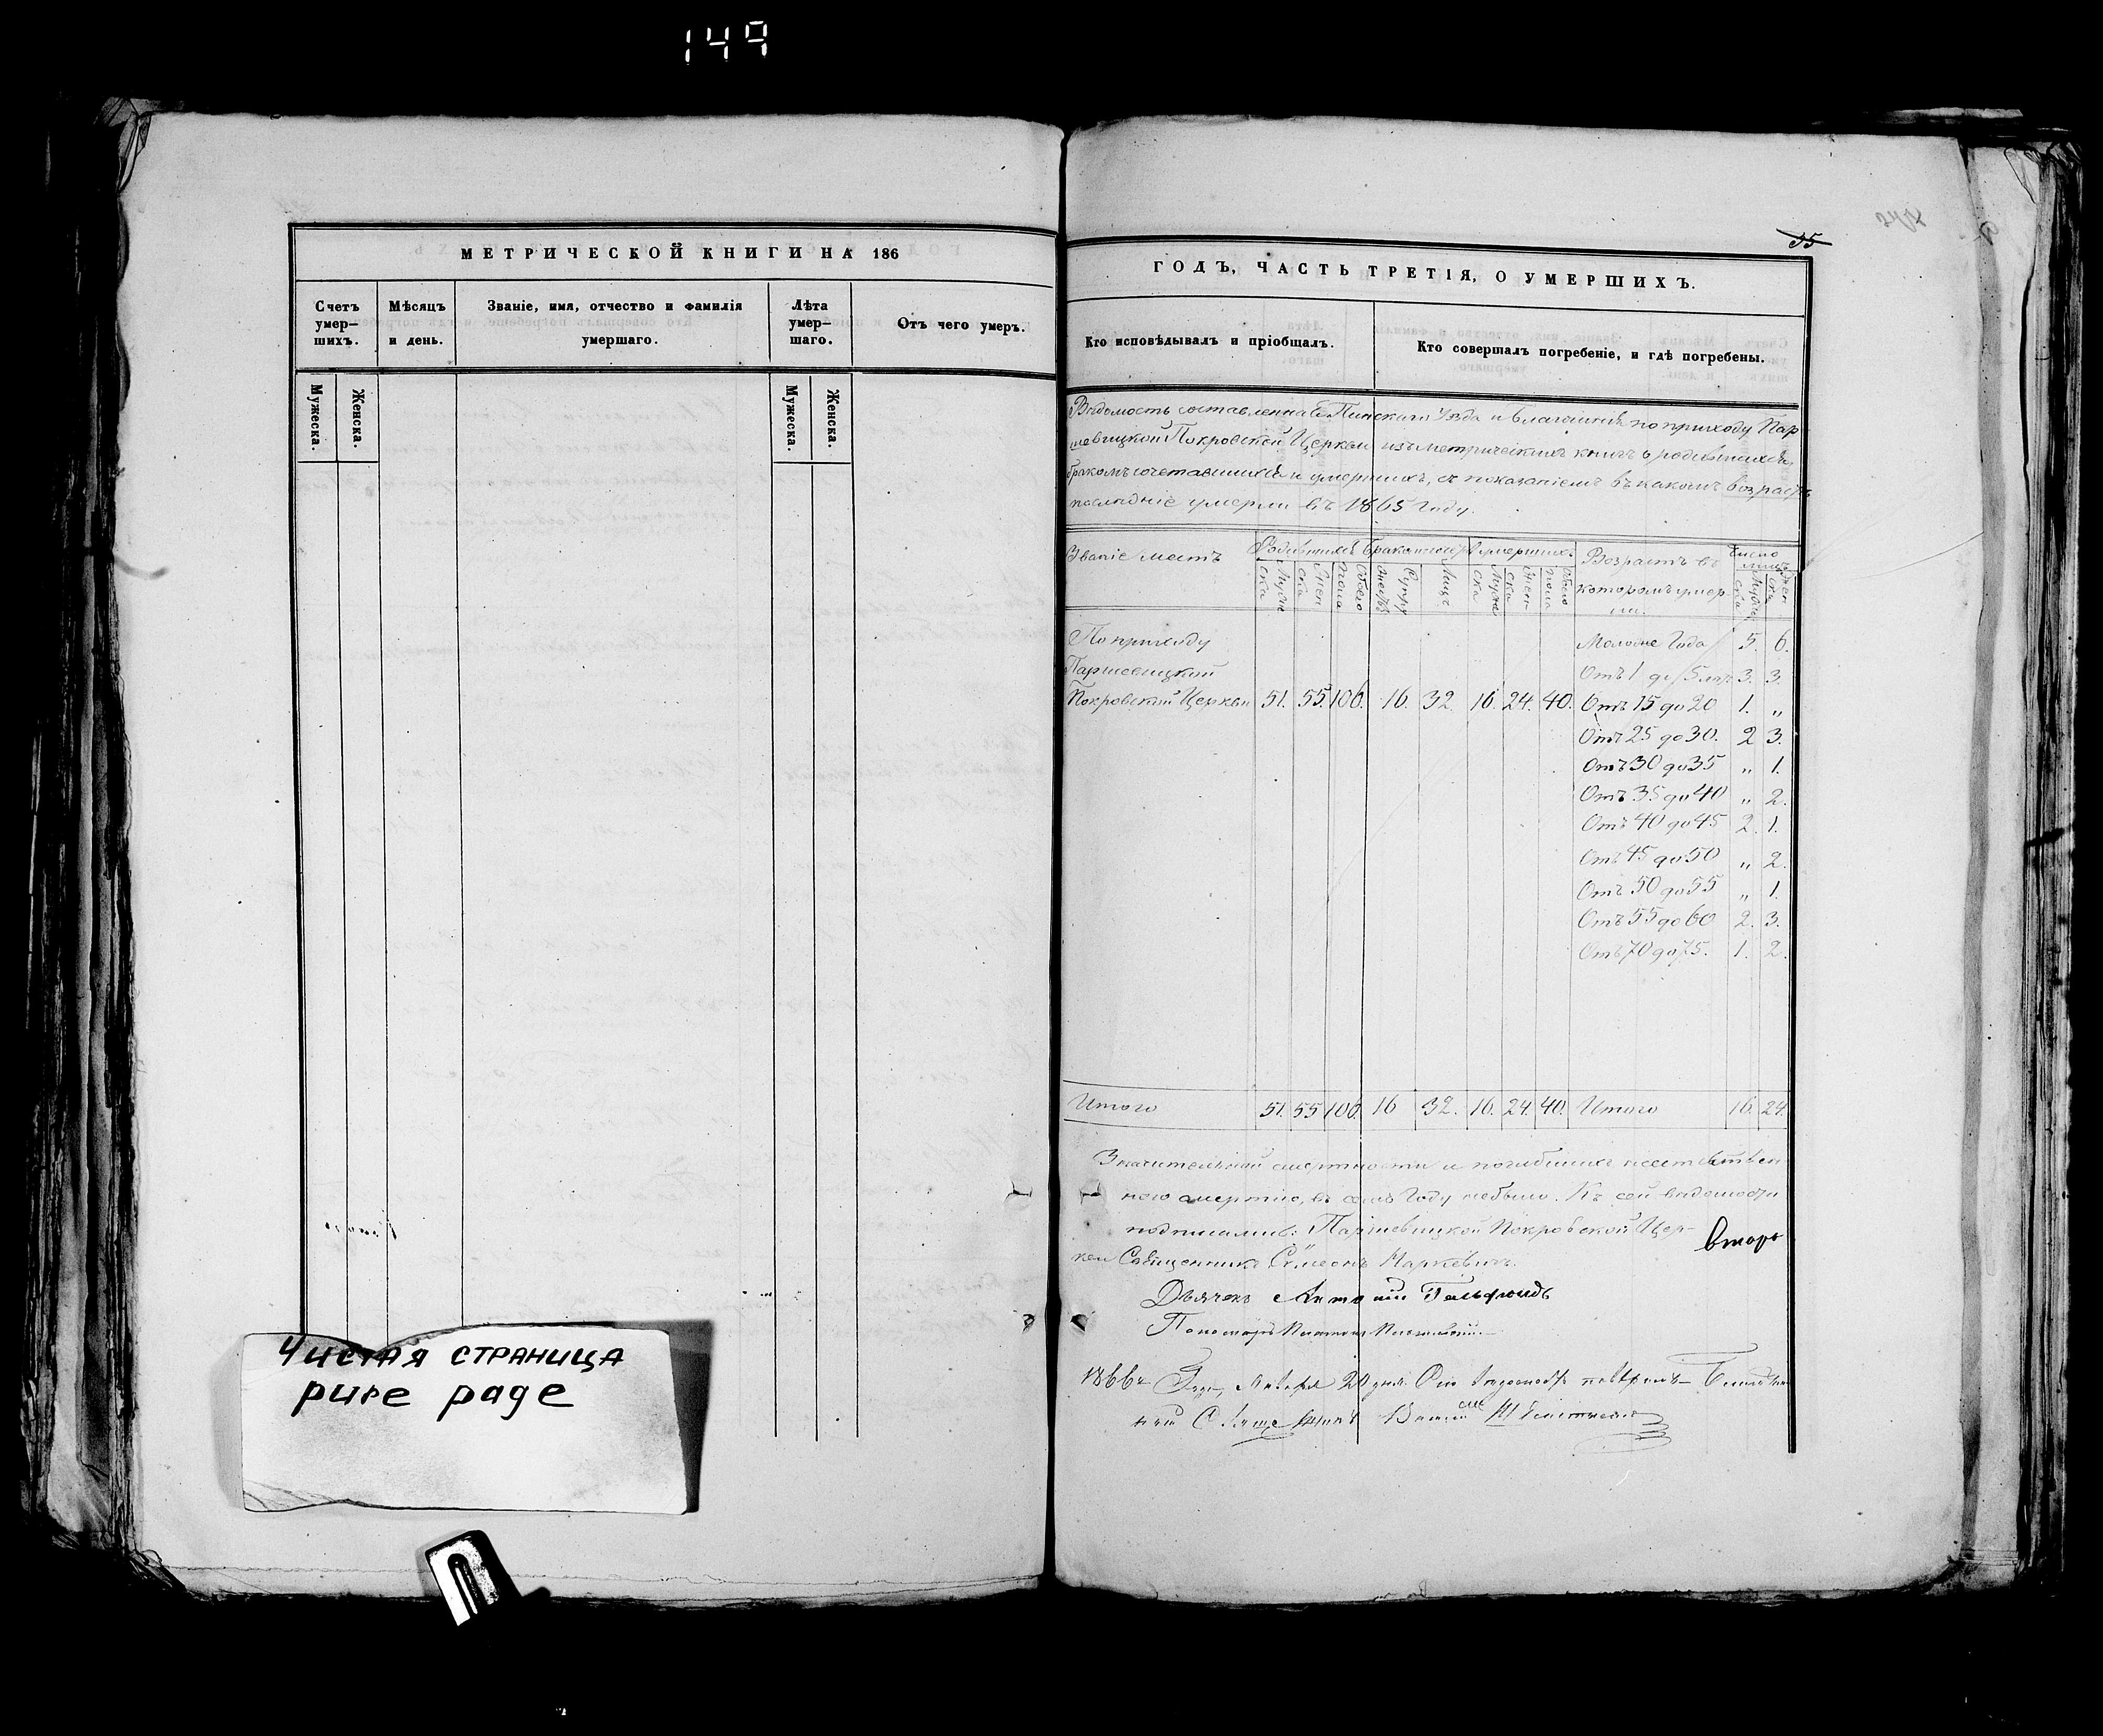 149
МЕТРИЧЕСКОЙ КНИГИ НА 186
Счетъ умер-шихъ.
Мѣсяцъ и день.
Званіе, имя, отчество и фамилія умершаго.
Лѣта умер-шаго.
Отъ чего умеръ.
Мужеска.
Женска.
Мужеска.
Женска.
Чистая страница
pure page
35
ГОДЪ, ЧАСТЬ ТРЕТІЯ, О УМЕРШИХЪ.
Кто исповѣдывалъ и пріобщалъ.
Кто совершалъ погребеніе, и гдѣ погребены.
Вѣдомость составленна Пинскаго Уѣзда и благочинія по приходу Пар
шевицкой Покровской Церкви изъ метрическихъ книгъ о родившихся,
бракомъ сочетавшихся и умершихъ, съ показаніемъ въ какомъ возрастѣ
послѣдніе умерли въ 1865 году.
Званіе мѣстъ
Родившихся
умершихъ
Возрастъ въ которомъ умерли.
Число лицъ
Мужеска
Женска
Обоего пола
Супружествъ
Лицъ
Мужеска
Женска
Обоего пола
Мужеска
Женска
По приходу
Паршевицкой
Покровской Церкви 51. 55. 106. 16. 32. 16. 24. 40.
Моложе Года 5. 6.
Отъ 1 до 5 лѣтъ 3. 3.
Отъ 15 до 20 1. „
Отъ 25 до 30. 2 3.
Отъ 30 до 35 „ 1.
Отъ 35 до 40 „ 2.
Отъ 40 до 45 2. 1.
Отъ 45 до 50 „ 2.
Отъ 50 до 55 „ 1.
Отъ 55 до 60 2. 3.
Отъ 70 до 75. 1. 2.
Итого 51. 55 106. 16 32. 16. 24. 40. Итого 16. 24.
Значительной смертности и погибшихъ неестествен
ною смертію, въ семъ Году небыло. Къ сей вѣдомости
подписались: Паршевицкой Покровской Цер-
кви Священникъ Симеонъ Маркевичъ.
Дьячекъ Антоній
Пономарь
1866 Года Января 20 дня
Священникъ